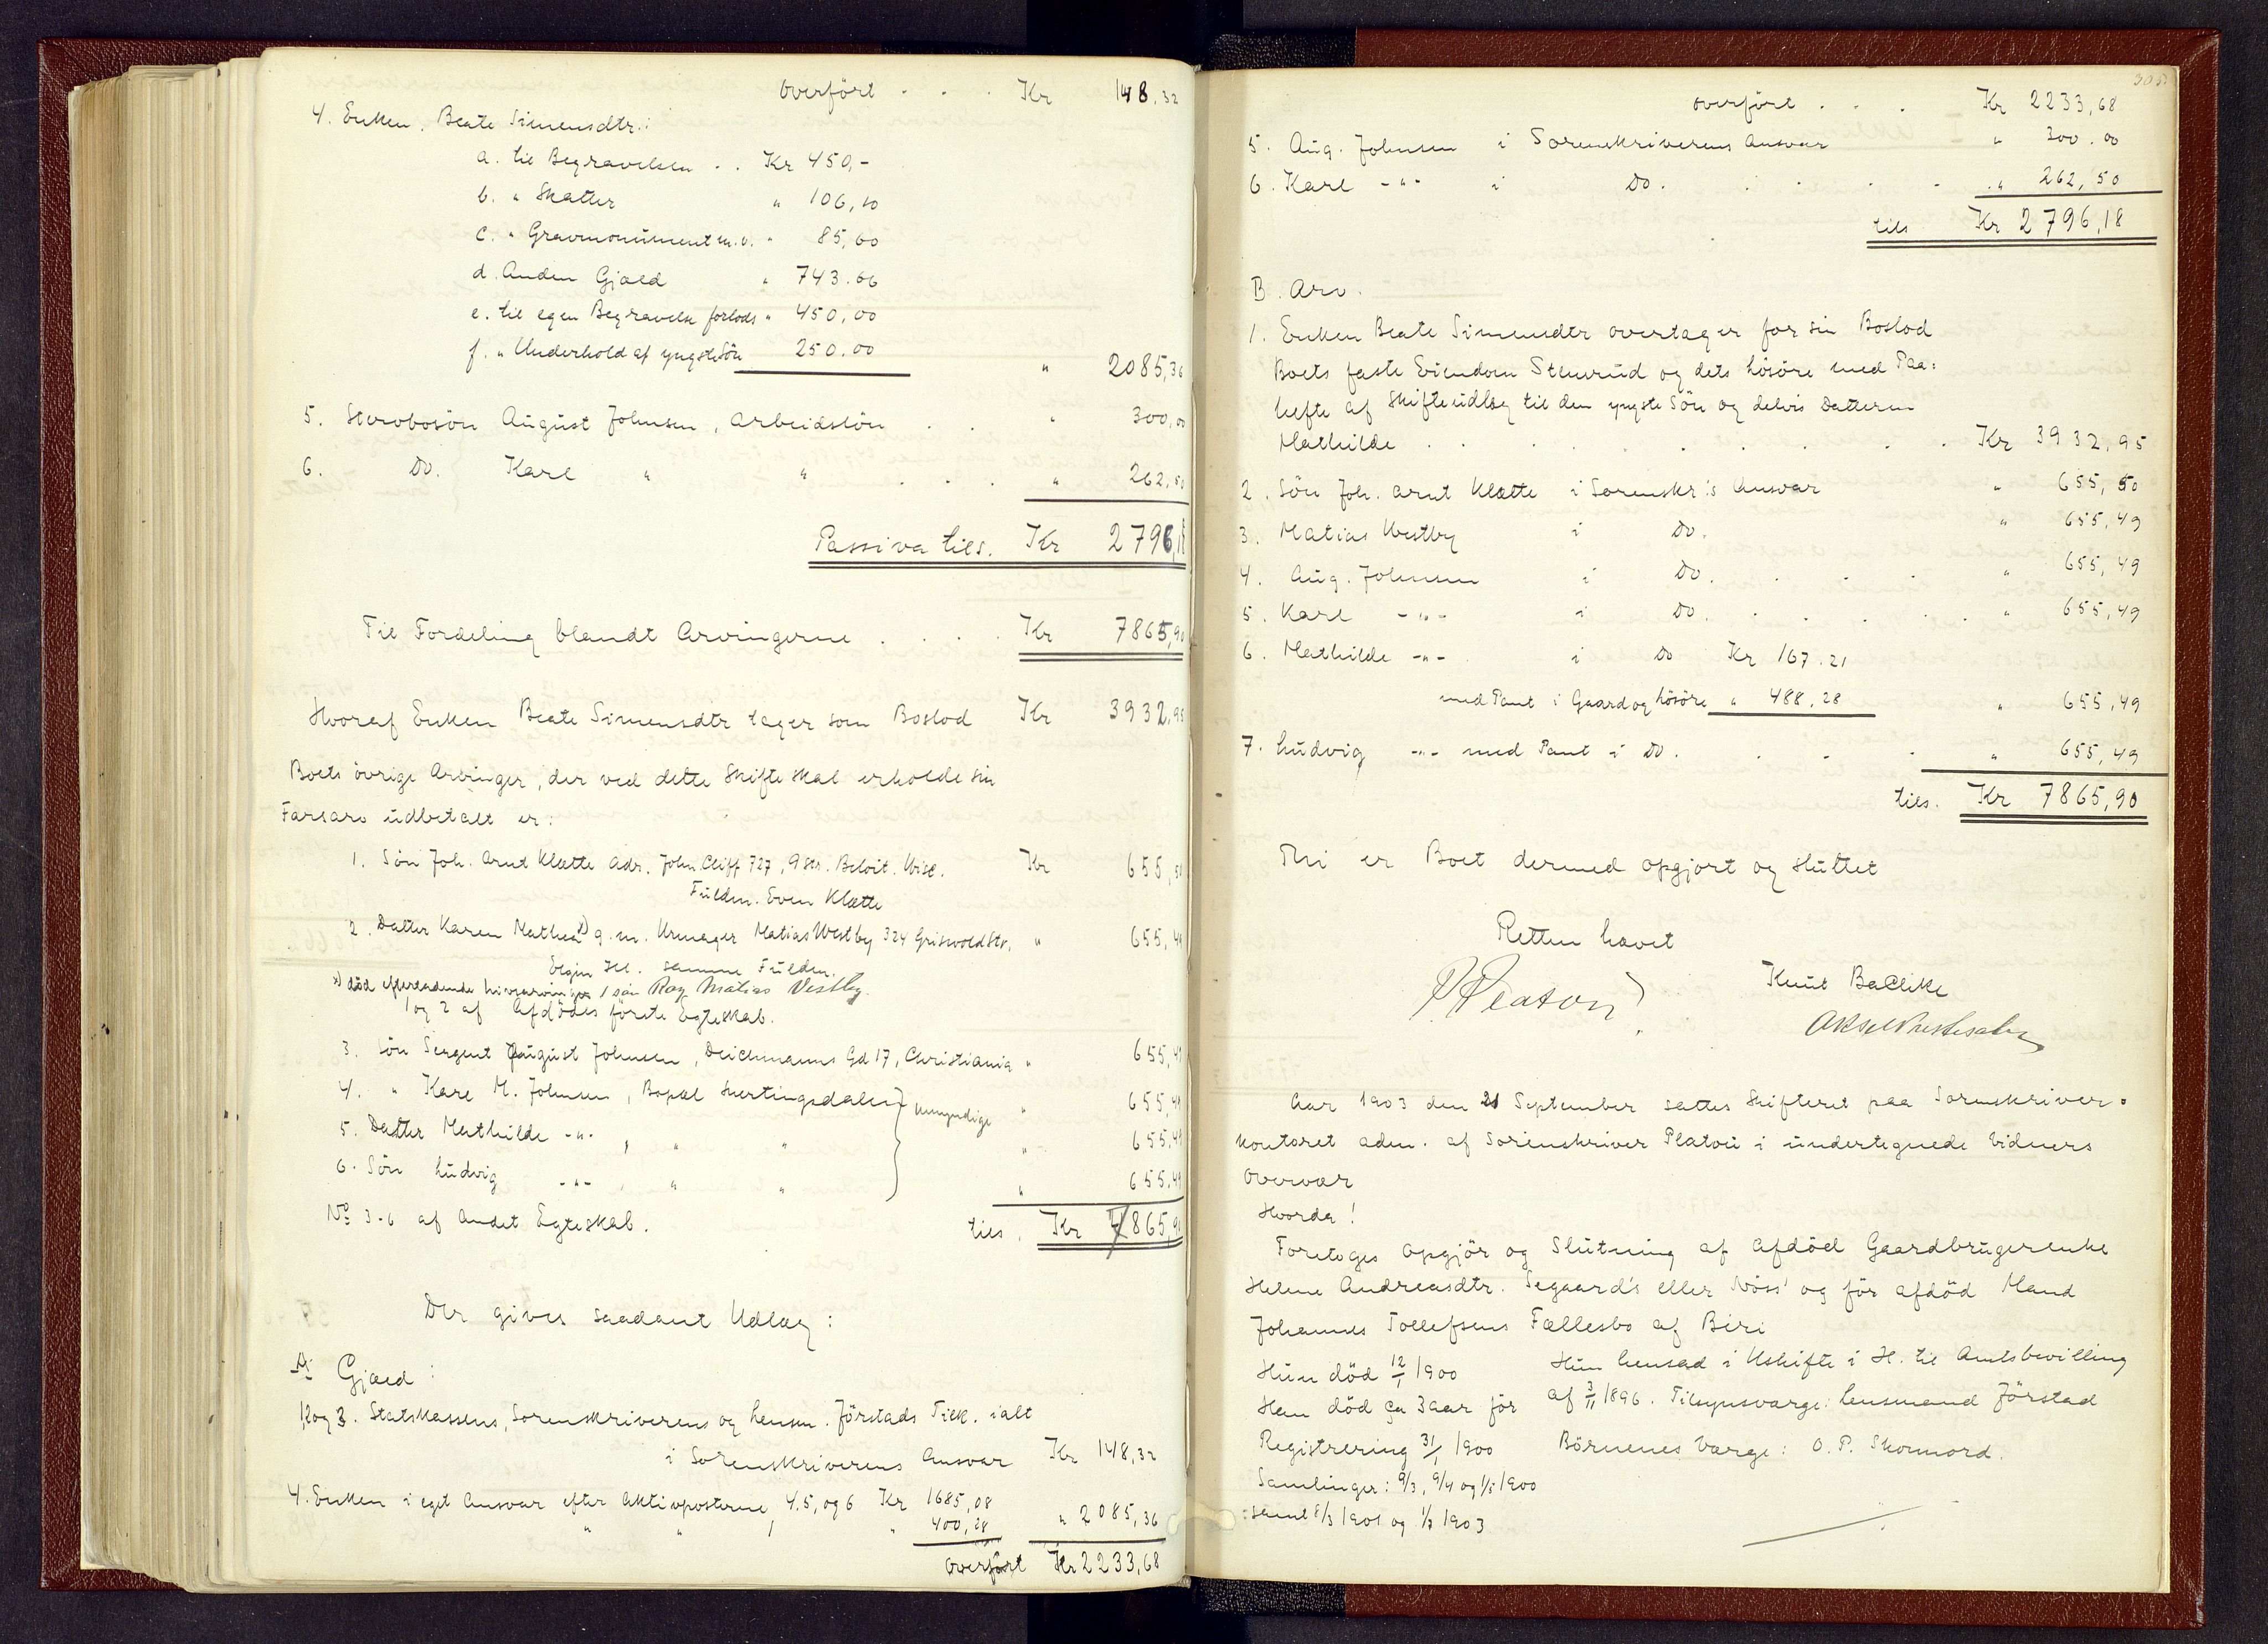 overført . . . Kr 148.32
4. Enken, Beate Simensdtr.:
a. til Begravelsen . . Kr 450,-
b. " Skatter " 106,10
c. " Gravmonument m.v. " 85,60
d. Anden Gjæld " 743.66
e. til egen Begravelse forlods " 450,00
f. " Underhold af yngste Søn 250.00 " 2085,36
5. Stervbosøn August Johnsen, Arbeidsløn . . " 300,00
6. Do. Karl " " . . . " 262,50
Passiva tils. Kr 2796,18
Til Fordeling blandt Arvingerne . . . . Kr 7865,90
Hvoraf Enken Beate Simensdtr tager som Boslod Kr 3932,95
Boets øvrige Arvinger, der ved dette Skifte skal erholde sin
Farsarv udbetalt er:
1. Søn Joh. Arnt Klætte adr. John Cliff 727, 9 Str. Beloit. Wisc. Kr 655,50
Fuldm. Even Klætte
2. Datter Karen Mathea x) g. m. Urmager Matias Westby 324 Griswold Str. " 655,49
Elgin Ill. samme Fuldm.
x) død efterladende livsarving 1 søn Roy Matias Vestby.
1 og 2 af Afdødes første Egteskab.
3. Søn Sergent August Johnsen, Deichmanns Gd 17, Christiania " 655,49
4. " Karl M. Johnsen, Bopæl Snertingsdalen } umyndige " 655,49
5. Datter Mathilde -"- , " " " 655,49
6. Søn Ludvig -"- , " " " 655,49
No 3-6 af Andet Egteskab. tils. Kr 7865,90
Der gives saadant Udlæg:
A. Gjæld:
1, 2 og 3. Statskassens, Sorenskriverens og Lensm. Jørstads Tilk. ialt
i Sorenskriverens Ansvar Kr 148,32
4. Enken i eget Ansvar efter Aktivposterne 4, 5, og 6 Kr 1685,08
" " 1 " 400,28 " 2085,36
overført Kr 2233,68
305
overført . . . Kr 2233,68
5. Aug. Johnsen i Sorenskriverens Ansvar " 300.00
6. Karl -"- i Do. . . . . " 262,50
tils Kr 2796,18
B. Arv.
1. Enken Beate Simensdtr overtager for sin Boslod
Boets faste Eiendom Stenrud og dets Løsøre med Paa:
hefte af Skifteudlæg til den yngste Søn og delvis Datteren
Mathilde . . . . . . . . Kr 3932,95
2. Søn Joh. Arnt Klætte i Sorenskr's Ansvar " 655,50
3. Matias Westby i Do. " 655,49
4. Aug. Johnsen i Do. . . . " 655,49
5. Karl -"- i Do. . . . . . " 655,49
6. Mathilde -"- i Do Kr 167.21
med Pant i Gaard og Løsøre " 488.28 " 655,49
7. Ludvig -"- med Pant i Do. . . . " 655,49
tils. Kr 7865,90
Thi er Boet dermed opgjort og sluttet
Retten hævet
Platou
Knut Baclike
Aar 1903 den 21 September sattes Skifteret paa Sorenskriver-
kontoret adm. af Sorenskriver Platou i undertegnede Vidners
Overvær
Hvorda!
Foretoges Opgjør og Slutning af afdød Gaardbrugerenke
Helene Andreasdtr. Segaard's eller Nøss' og før afdød Mand
Johannes Tollefsens Fællesbo af Biri
Hun død 12/1 1900 Hun hensad i Uskifte i H. til Amtsbevilling
Han død ca 3 aar før af 3/11 1896. Tilsynsværge: Lensmand Jørstad
Registrering 31/1 1900 Børnenes Værge: O. P. Skonnord.
Samlinger: 9/3, 9/4 og 1/5 1900
samt 8/3 1901 og 1/7 1903